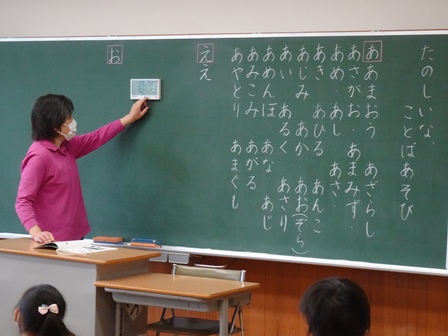 たのしいな、
ことばあそび
あ あまおう あざらし
あさがお あまみず
あめ あし あさ
あき あひる あんこ
あじみ あか あお(ぞら)
あい あるく あさり
あめんぼ あな あじ
あみこみ あがる
あやとり あまくも
え え
お